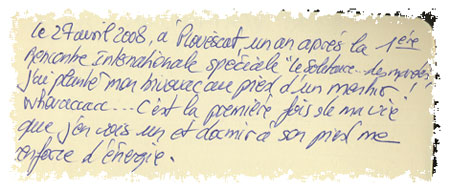 Le 27 avril 2008, à Plouescat un an après la 1ère
Rencontre Internationale spéciale "le Solitaire... des marées
j'ai planté mon bivouac au pied d'un menhir !
Whaouaouu... C'est la première fois de ma vie
que j'en vois un et dormir à son pied me
renforce d'énergie.